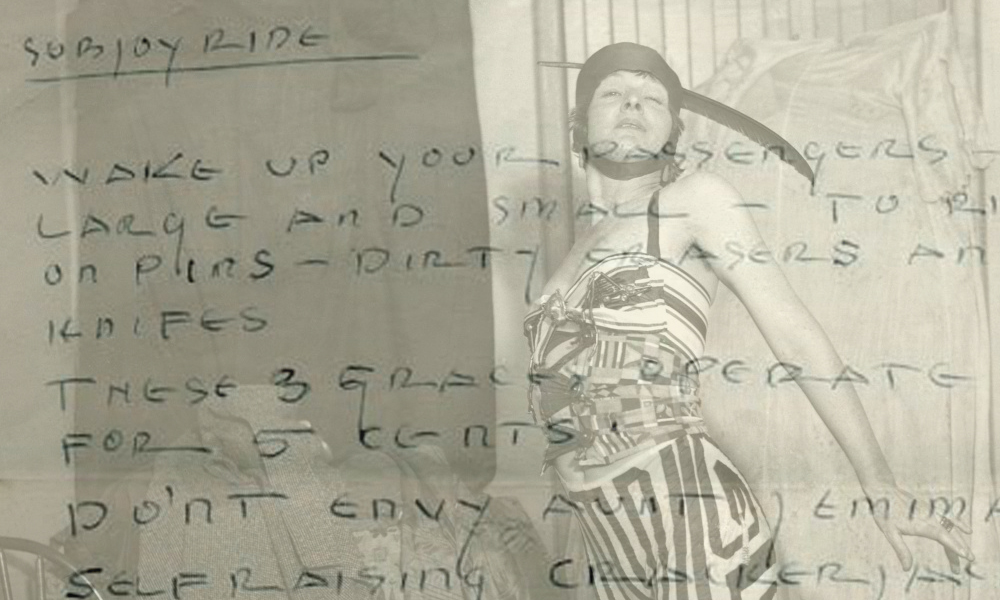 SUBJOY RIDE
WAKE UP YOUR PASSENGERS –
LARGE AND SMALL – TO RI
ON PINS – DIRTY ERASERS AN
KNIFES
THESE 3 GRACES OPERATE
FOR 5 CENTS!
DO'NT ENVY AUNT JEMIMA
SELFRAISING CRACKERJAC